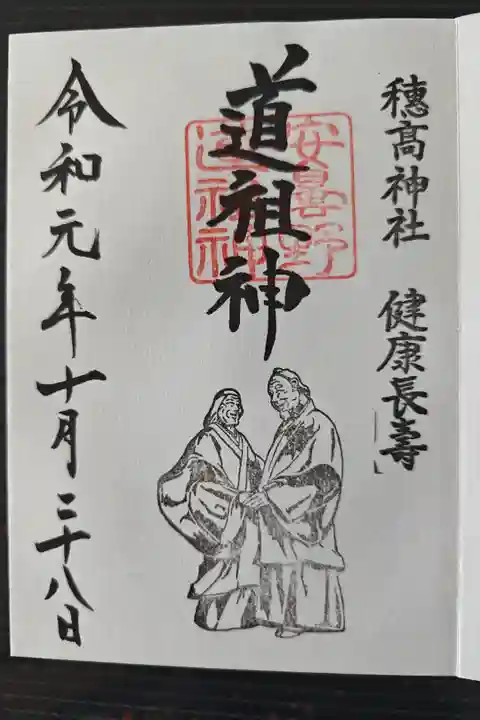 穂高神社 健康長壽
道祖神
安曇野
道祖神
令和元年十月二十八日